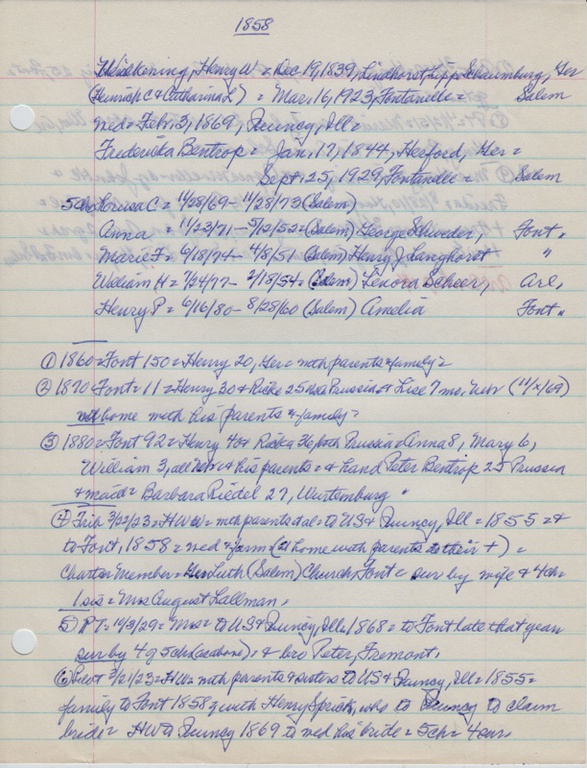 1858
Weidkening, Henry W = Dec 19, 1839, Lindhorst, Lipp Schaumburg, Ger
(Heinrich C & Catharina L) = Mar, 16, 1923, Fontanelle = Salem
wed = Feb. 3, 1869, Quincy, Ill =
Frederika Bentrop = Jan, 17, 1844, Herford, Ger =
Sept. 25, 1929, Fontanelle = Salem
5 ch = Louisa C = 11/28/69 - 11/28/73 (Salem)
Anna = 11/23/71 - 5/12/52 = (Salem) George Schroeder, Font =
Marie F = 6/18/74 - 4/8/51 (Salem) Henry J Langhorst "
William H = 7/24/77 - 2/18/54 = (Salem) Lenora Scheer, Arl,
Henry P = 6/16/80 - 8/28/60 (Salem) Amelia Font =
① 1860 = Font 150 = Henry 20, Ger = with parents & family =
② 1870 Font = 11 = Henry 30 & Ricke 25 both Prussia & Lise 7 mo, Nebr (11/x/69)
at home with his parents & family =
③ 1880 = Font 92 = Henry 40 & Ricka 36, both Prussia = Anna 8, Mary 6,
William 3, all Nebr & his parents = & hand Peter Bentrop 25 Prussia
& maid = Barbara Riedel 27, Wurtemburg "
④ Trib 3/22/23 = HWW = with parents & al = to US & Quincy, Ill = 1855 = &
to Font, 1858 = wed & farm (at home with parents to their +) =
Charter Member = Luth (Salem) Church, Font = sur by wife & 4 ch =
1 sis = Mrs August Lallman.
5) PT = 10/3/29 = Mrs = to US & Quincy, Ill, 1868 = to Font late that year
sur by 4 of 5 ch (as above) = & bro Peter, Fremont.
⑥ 3/21/23 = HW = with parents & sisters to US & Quincy, Ill = 1855 =
family to Font 1858 with Henry Sprick, who to Quincy to claim
bride = HW to Quincy 1869 to wed his bride = 5 ch = 4 sur,